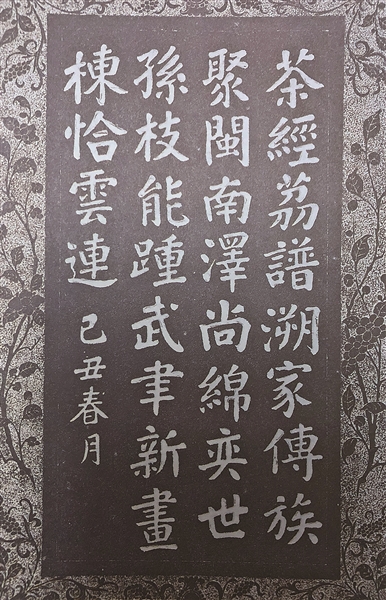 茶經荔譜溯家傳族
聚閩南澤尚綿奕世
孫枝能踵武聿新畫
棟恰雲連
己丑春月